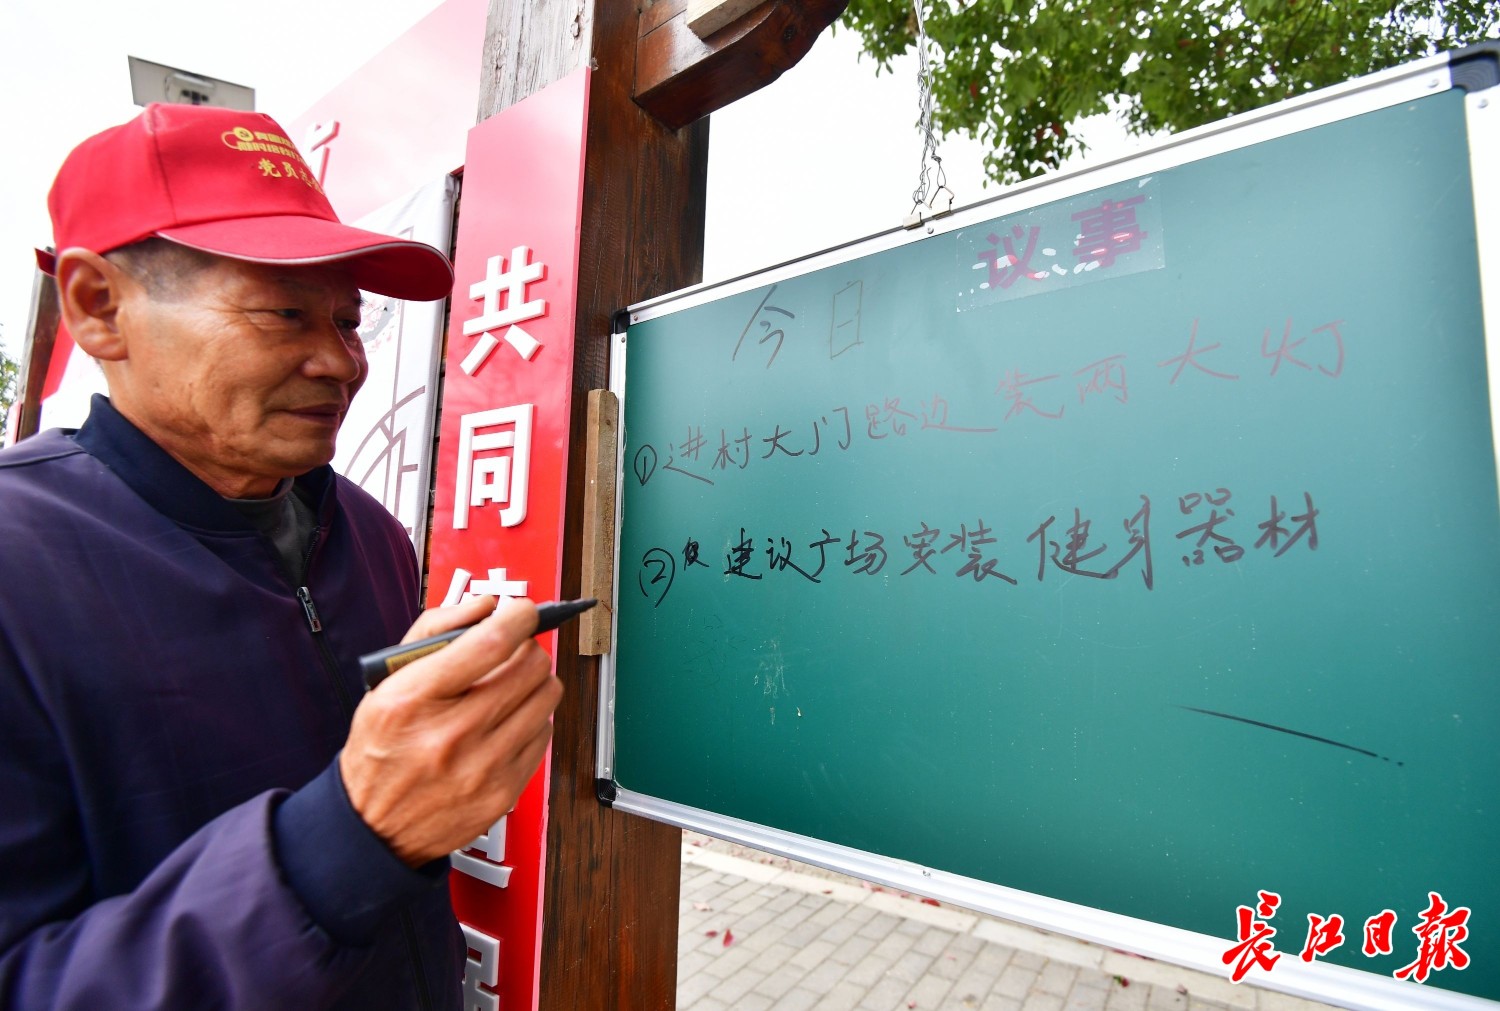 党员
共同
议事
今日
①进村大门路边装两大灯
②建议广场安装健身器材
长江日报